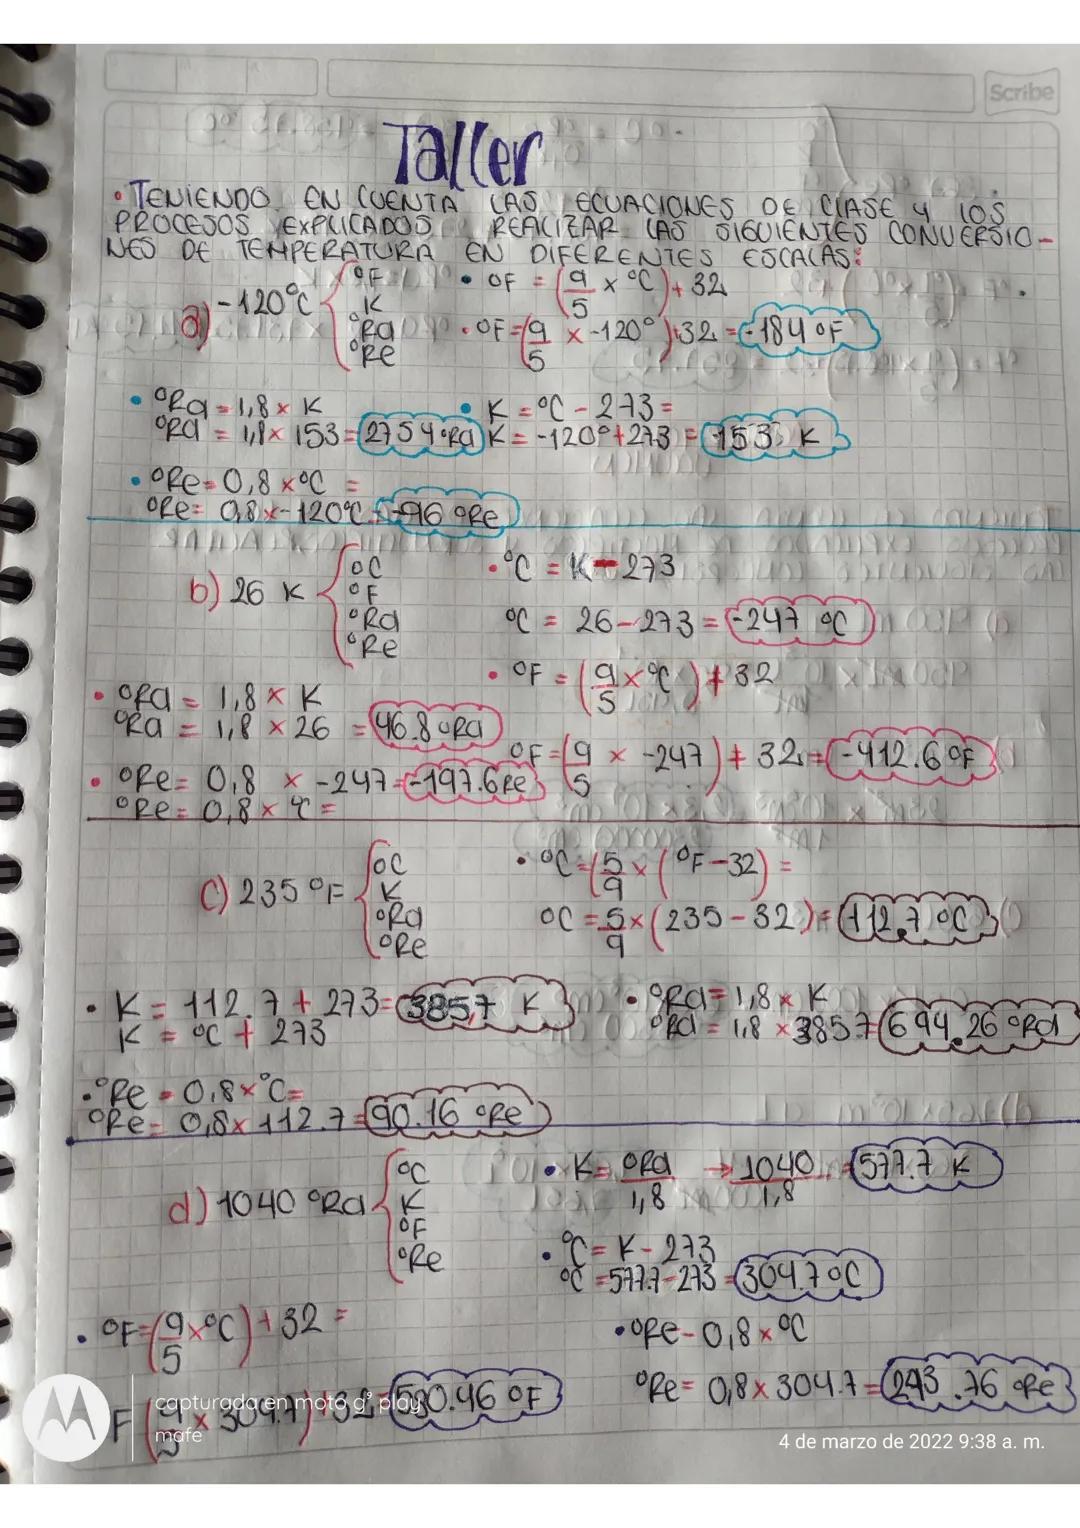 Scribe
Taller
• TENIENDO EN CUENTA LAS ECUACIONES DE CLASE Y LOS
PROCESOS EXPLICADOS REALIZAR LAS SIGUIENTES CONVERSIO-
NES DE TEMPERATURA EN DIFERENTES ESCALAS:
a) -120°C { °F K °Ra °Re
• °F = (9/5 x °C) + 32
• °F = (9/5 x -120°) + 32 = -184 °F
• °Ra = 1,8 x K
°Ra = 1,8 x 153 = 2754 °Ra
• K = °C - 273 =
K = -120° + 273 = 153 K
• °Re = 0,8 x °C =
°Re = 0,8 x -120°C = -96 °Re
b) 26 K { °C °F °Ra °Re
• °C = K - 273
°C = 26 - 273 = -247 °C
• °F = (9/5 x °C) + 32
°F = (9/5 x -247) + 32 = -412.6 °F
• °Ra = 1,8 x K
°Ra = 1,8 x 26 = 46.8 °Ra
• °Re = 0,8 x -247 = -197.6 Re
°Re = 0,8 x °C =
c) 235 °F { °C K °Ra °Re
• °C = (5/9 x (°F - 32) =
°C = 5/9 x (235 - 32) = 112,7 °C
• K = 112.7 + 273 = 385,7 K
K = °C + 273
• °Ra = 1,8 x K
°Ra = 1,8 x 385.7 = 694.26 °Ra
• °Re = 0,8 x °C =
°Re = 0,8 x 112.7 = 90.16 °Re
d) 1040 °Ra { °C K °F °Re
• K = °Ra/1,8 → 1040/1,8 = 577.7 K
• °C = K - 273
°C = 577.7 - 273 = 304.7 °C
• °F = (9/5 x °C) + 32 =
F (9/5 x 304.7) + 32 = 580.46 °F
• °Re = 0,8 x °C
°Re = 0,8 x 304.7 = 243.76 °Re
capturada en moto g⁸ play
mafe
4 de marzo de 2022 9:38 a. m.